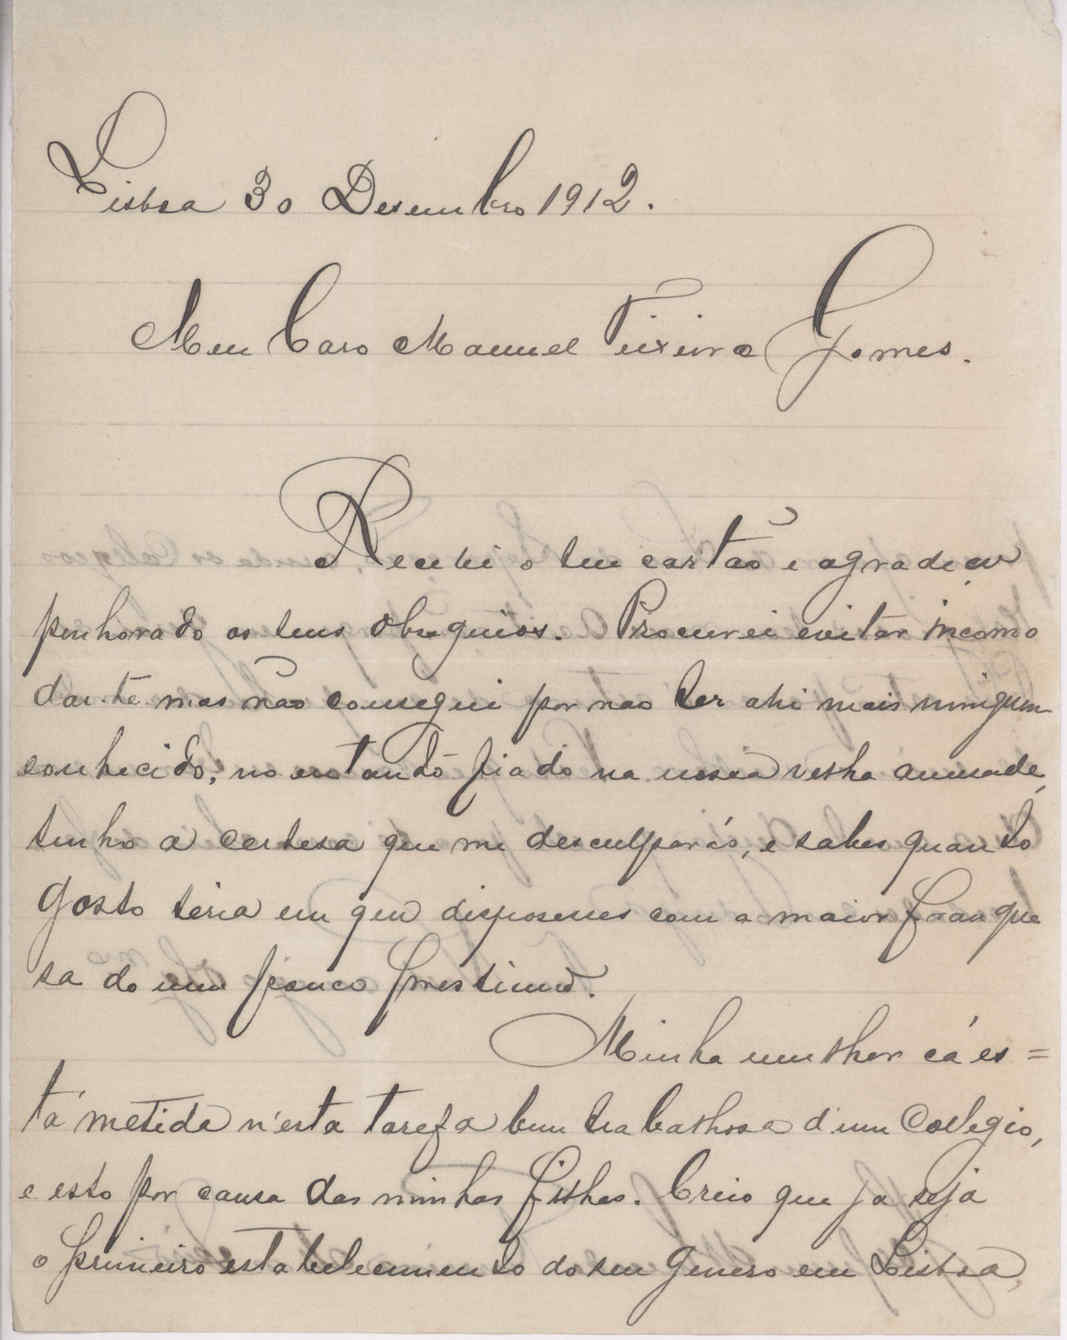 Lisboa 30 Desembro 1912.
Meu Caro Manuel Teixeira Gomes.
Recebi o teu cartão e agradeço
penhorado os teus obsequios. Procurei evitar incomo
dar-te mas não consegui por não ter ahi mais ninguem
conhecido, no entando fiado na nossa velha amisade,
tenho a certesa que me desculparás, e sabes quanto
gosto teria em que disposesses com a maior franque
sa do meu pouco prestimo.
Minha mulher cá es=
tá metida n'esta tarefa bem trabalhosa d'um Colegio,
e esto por causa das minhas filhas. Creio que já seja
o primeiro estabelecimento do seu genero em Lisboa,